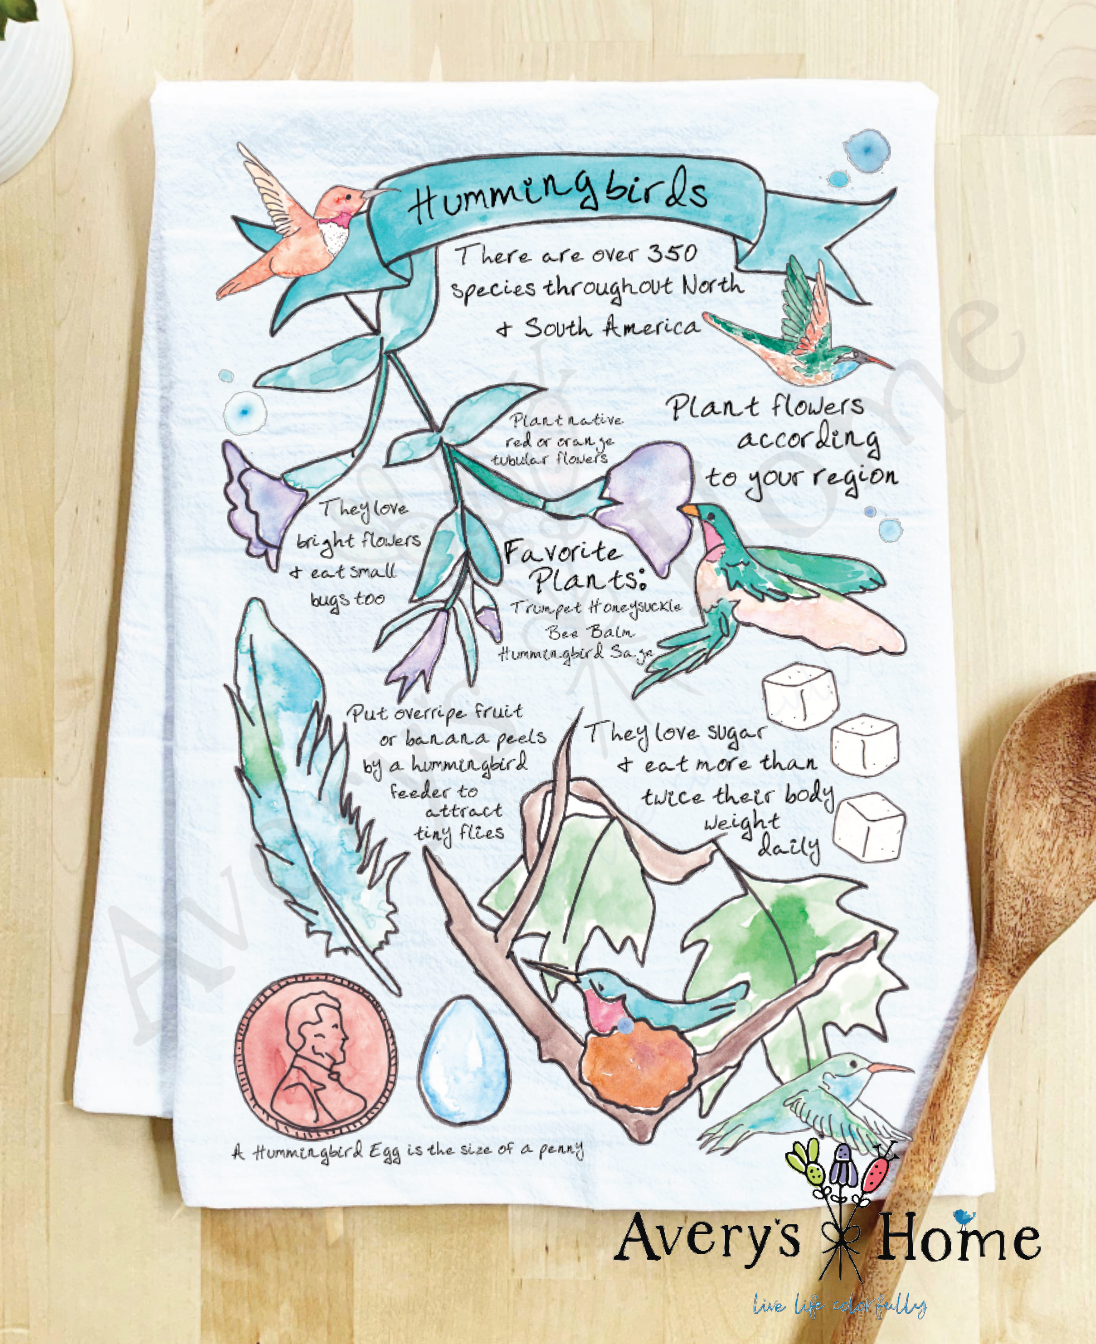 Hummingbirds
There are over 350
species throughout North
& South America
Plant flowers
according
to your region
Plant native
red or orange
tubular flowers
They love
bright flowers
& eat small
bugs too
Favorite
Plants:
Trumpet Honeysuckle
Bee Balm
Hummingbird Sage
Put overripe fruit
or banana peels
by a hummingbird
feeder to
attract
tiny flies
They love sugar
& eat more than
twice their body
weight
daily
A Hummingbird Egg is the size of a penny
Avery's Home
live life colorfully